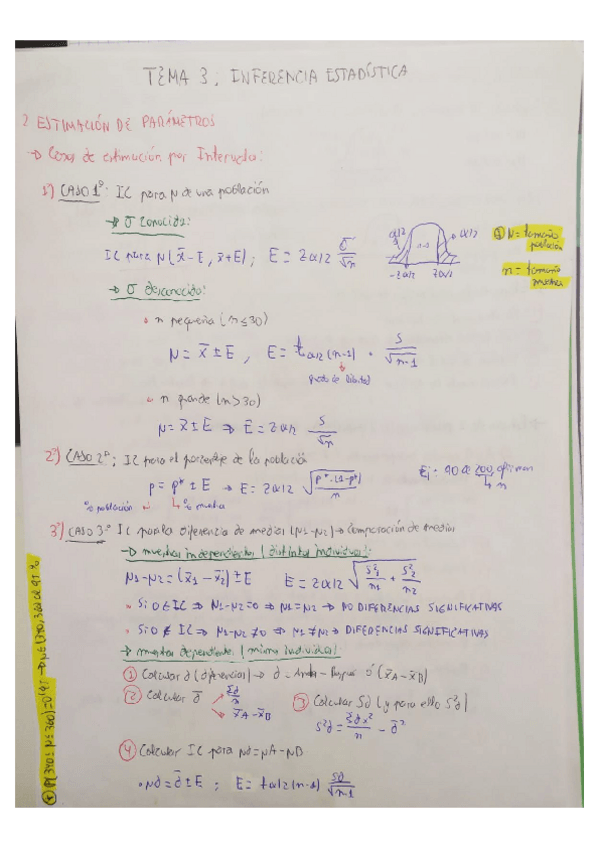 TEMA 3: INFERENCIA ESTADÍSTICA
2 ESTIMACIÓN DE PARÁMETROS
→ Casos de estimación por Intervalo:
1º) CASO 1º: IC para μ de una población
→ σ conocida:
IC para μ (x̄-E, x̄+E); E = Zα/2 σ/√n
α/2 1-α α/2
-Zα/2 Zα/2
N = tamaño población
n = tamaño muestra
→ σ desconocida:
• n pequeña (n≤30)
μ = x̄ ± E, E = tα/2 (n-1) · S/√n-1
grados de libertad
• n grande (n>30)
μ = x̄ ± E ⇒ E = Zα/2 S/√n
2º) CASO 2º: IC para el porcentaje de la población
p = p* ± E → E = Zα/2 √p*·(1-p*)/n
% población % muestra
Ej: 90 de 200 opinan
↳ n
3º) CASO 3º IC para la diferencia de medias (μ1-μ2) → Comparación de medias
→ muestras independientes (distintos individuos):
μ1-μ2 = (x̄1-x̄2) ± E E = Zα/2 √S²1/n1 + S²2/n2
• Si 0 ∈ IC ⇒ μ1-μ2=0 ⇒ μ1=μ2 ⇒ NO DIFERENCIAS SIGNIFICATIVAS
• Si 0 ∉ IC ⇒ μ1-μ2 ≠ 0 ⇒ μ1≠μ2 ⇒ DIFERENCIAS SIGNIFICATIVAS
→ muestras dependientes (mismos individuos):
① Calcular d (diferencias) → d = Antes - Después ó (x̄A-x̄B)
② Calcular d̄ Σd/n
x̄A-x̄B
③ Calcular Sd (y para ello S²d)
S²d = Σdx²/n - d̄²
④ Calcular IC para μd=μA-μB
• μd = d̄ ± E; E = tα/2 (n-1) Sd/√n-1